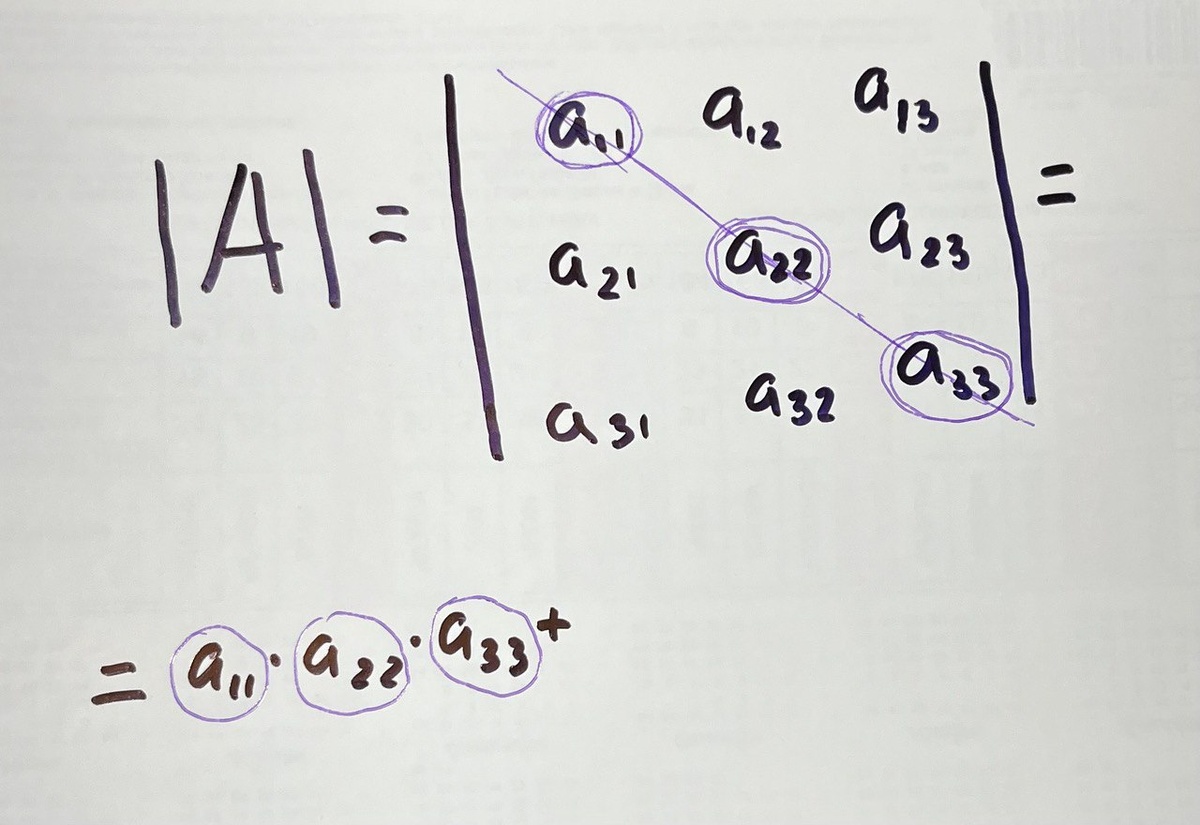 |A| = | a₁₁ a₁₂ a₁₃ | =
a₂₁ a₂₂ a₂₃
a₃₁ a₃₂ a₃₃
= a₁₁ · a₂₂ · a₃₃ +